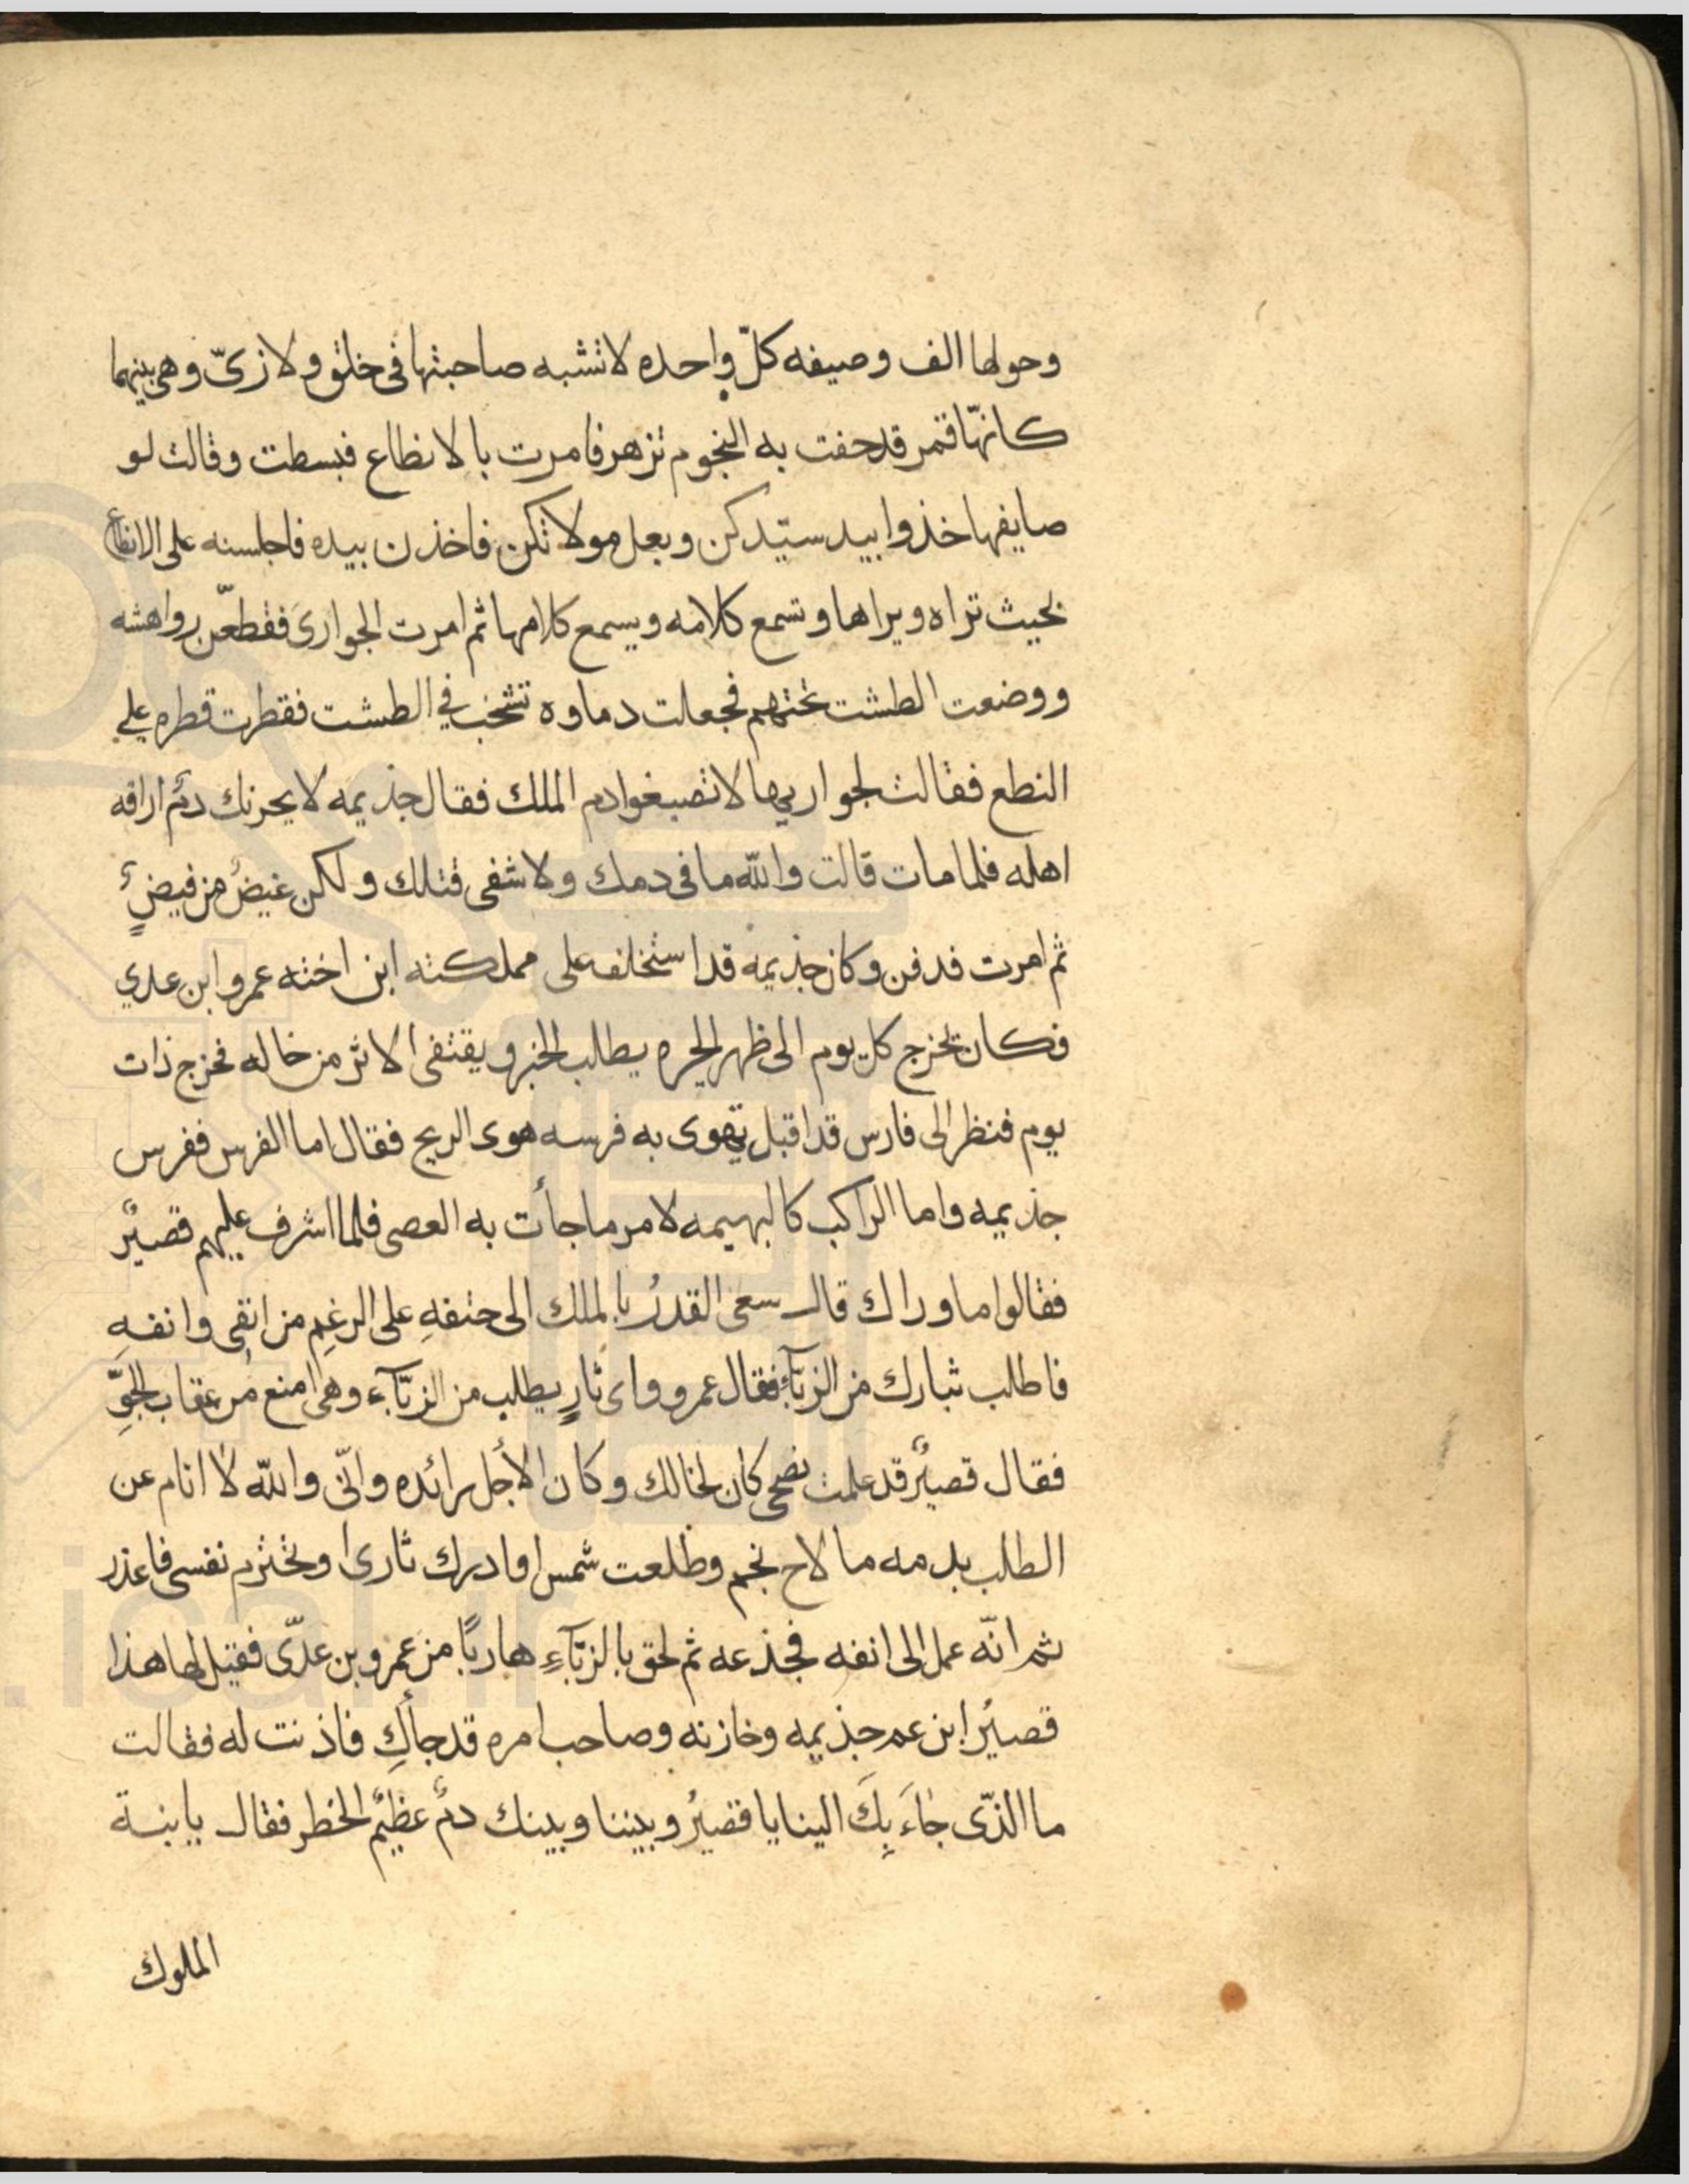 وحولها الف وصيفه كلّ واحده لا تشبه صاحبتها فى خلق ولا زىّ وهى بينهما
كانهّا قمر قد حفت به النجوم تزهر فامرت بالانطاع فبسطت وقالت لو
صايفها خذوا بيد سيّدكن وبعل مولاتكن فاخذن بيده فاجلسنه على الانطاع
بحيث تراه ويراها وتسمع كلامه ويسمع كلامها ثم امرت الجوارىَ فقطعّن رواهشه
ووضعت الطشت تحتهم فجعلت دماوه تشخب في الطشت فقطرت قطره علي
النطع فقالت لجواريها لا تصبغوا دم الملك فقال جذيمه لا يحزنك دم اراقه
اهله فلما مات قالت والله ما فى دمك ولا شفى قتلك ولكن غيضٌ من فيضٍ
ثم امرت فدفن وكان جذيمه قد استخلف على مملكته ابن اخته عمرو ابن عدي
فكان يخرج كل يوم الى ظهر الحيره يطلب الخبر ويقتفى الاثر من خاله فخرج ذات
يوم فنظر الى فارس قد اقبل تهوى به فرسه هوى الريح فقال اما الفرس ففرس
جذيمه واما الراكب كالبهيمه لامر ما جأت به العصى فلما اشرف عليهم قصيرٌ
فقالوا ما وراك قال سعى القدرُ بالملك الى حتفهِ على الرغمِ من انفى وانفهِ
فاطلب بثارك من الزبّآءِ فقال عمرو واى ثارٍ يطلب من الزبّآء وهى امنع من عقاب الجوِّ
فقال قصيرٌ قد علمت نصحى كان لخالك وكان الأجل رائده وانّى والله لا انام عن
الطلب بدمه ما لاح نجم وطلعت شمس او ادرك ثارى او تخترم نفسى فاعذر
ثم انّه عمل الى انفه فجذعه ثم لحق بالزبّآءِ هاربًا من عمرو بن عدىّ فقيل لها هذا
قصيرُ ابن عم جذيمه وخازنه وصاحب امره قد جأكِ فاذنت له فقالت
ما الذّى جَاءَ بِكَ الينا يا قصيرُ وبيننا وبينك دمٌ عظيمُ الخطر فقال يا بنة
الملوك